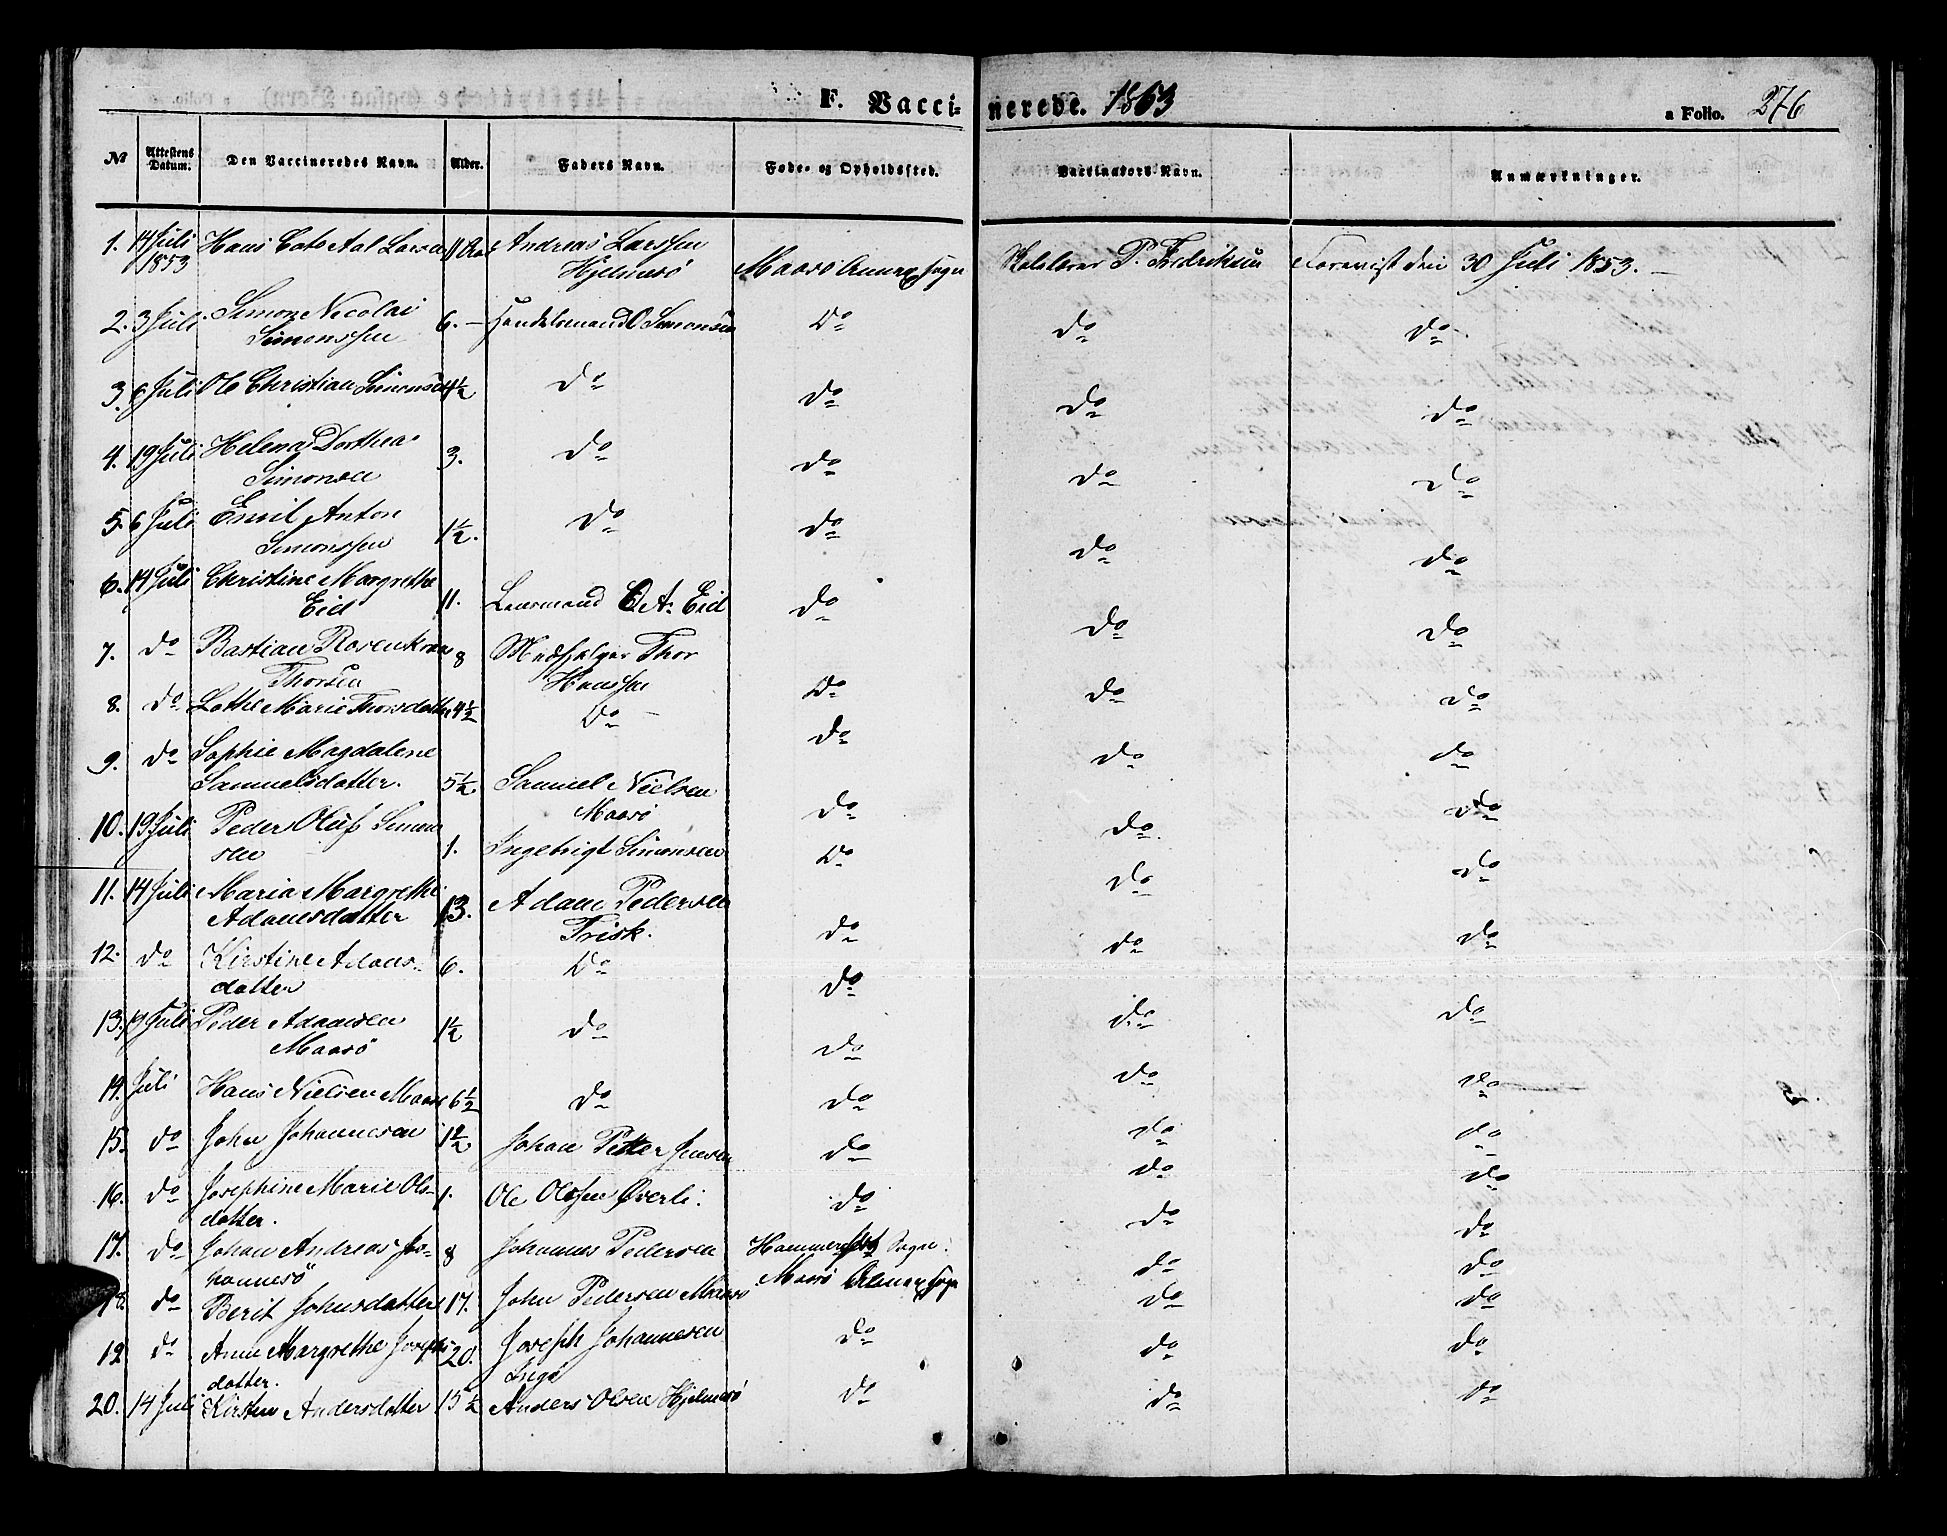 F. Vaccinerede. 1853 a Folio. 276
No Attestens Datum. Den Vaccineredes Navn. Alder. Faders Navn. Føde- og Opholdssted. Vaccinators Navn. Anmærkninger.
1. 14 Juli 1853 Hans Cato Aal Larsen 11 Andreas Larssen Hjelmsö Maasö Annex Sogn P. Fredriksen Foreviist den 30 Juli 1853. —
2. 3 Juli Simon Nicolai Simonssen 6. — Handelsmand O Simonsen Do Do Do
3. 6 Juli Ole Christian Simonsen 4½ Do Do Do Do
4. 19 Juli Helena Dorthea Simonsen 3. Do Do Do Do
5. 6 Juli Emil Anton Simonssen 1½. Do Do Do Do
6. 14 Juli Christine Margrethe Eid 11. Lensmand A. Eid Do Do Do
7. Do Bastian Rosenkran Thorsen 8 Medhjelper Thor Hanssen Do Do Do
8. Do Lothe Marie Thorsdatter 4½ Do Do Do Do
9. Do Sophie Magdalene Samuelsdatter. 5½ Samuel Nielsen Maasö Do Do Do
10. 19 Juli Peder Oluf Simonsen 1. Ingebrigt Simonsen Do Do Do
11. 14 Juli Maria Margrethe Adamsdatter 13. Adam Pedersen Frisk. Do Do Do
12. Do Kirstine Adamsdatter 6. Do Do Do Do
13. 19 Juli Peder Adamsen Maasö 1½ Do Do Do Do
14. Juli Hans Nielsen Maasö 6½ Do Do Do Do
15. Do John Johannesen 1½ Johan Petter Jensen Do Do Do
16. Do Josephine Marie Olsdatter. 1. Ole Olssen Overli. Do Do Do
17. Do Johan Andreas Johannesö 8 Johannes Pedersen Hammerfest Sogn. Do Do
18. Do Berit Johnsdatter 17. John Pedersen Maasö Maasö Annex Sogn Do Do
19 Do Anne Margrethe Josephsdatter. 20. Joseph Johannesen Ingö Do Do Do
20. 14 Juli Kirsten Andersdatter 15½ Anders Olsen Hjelmsö Do Do Do